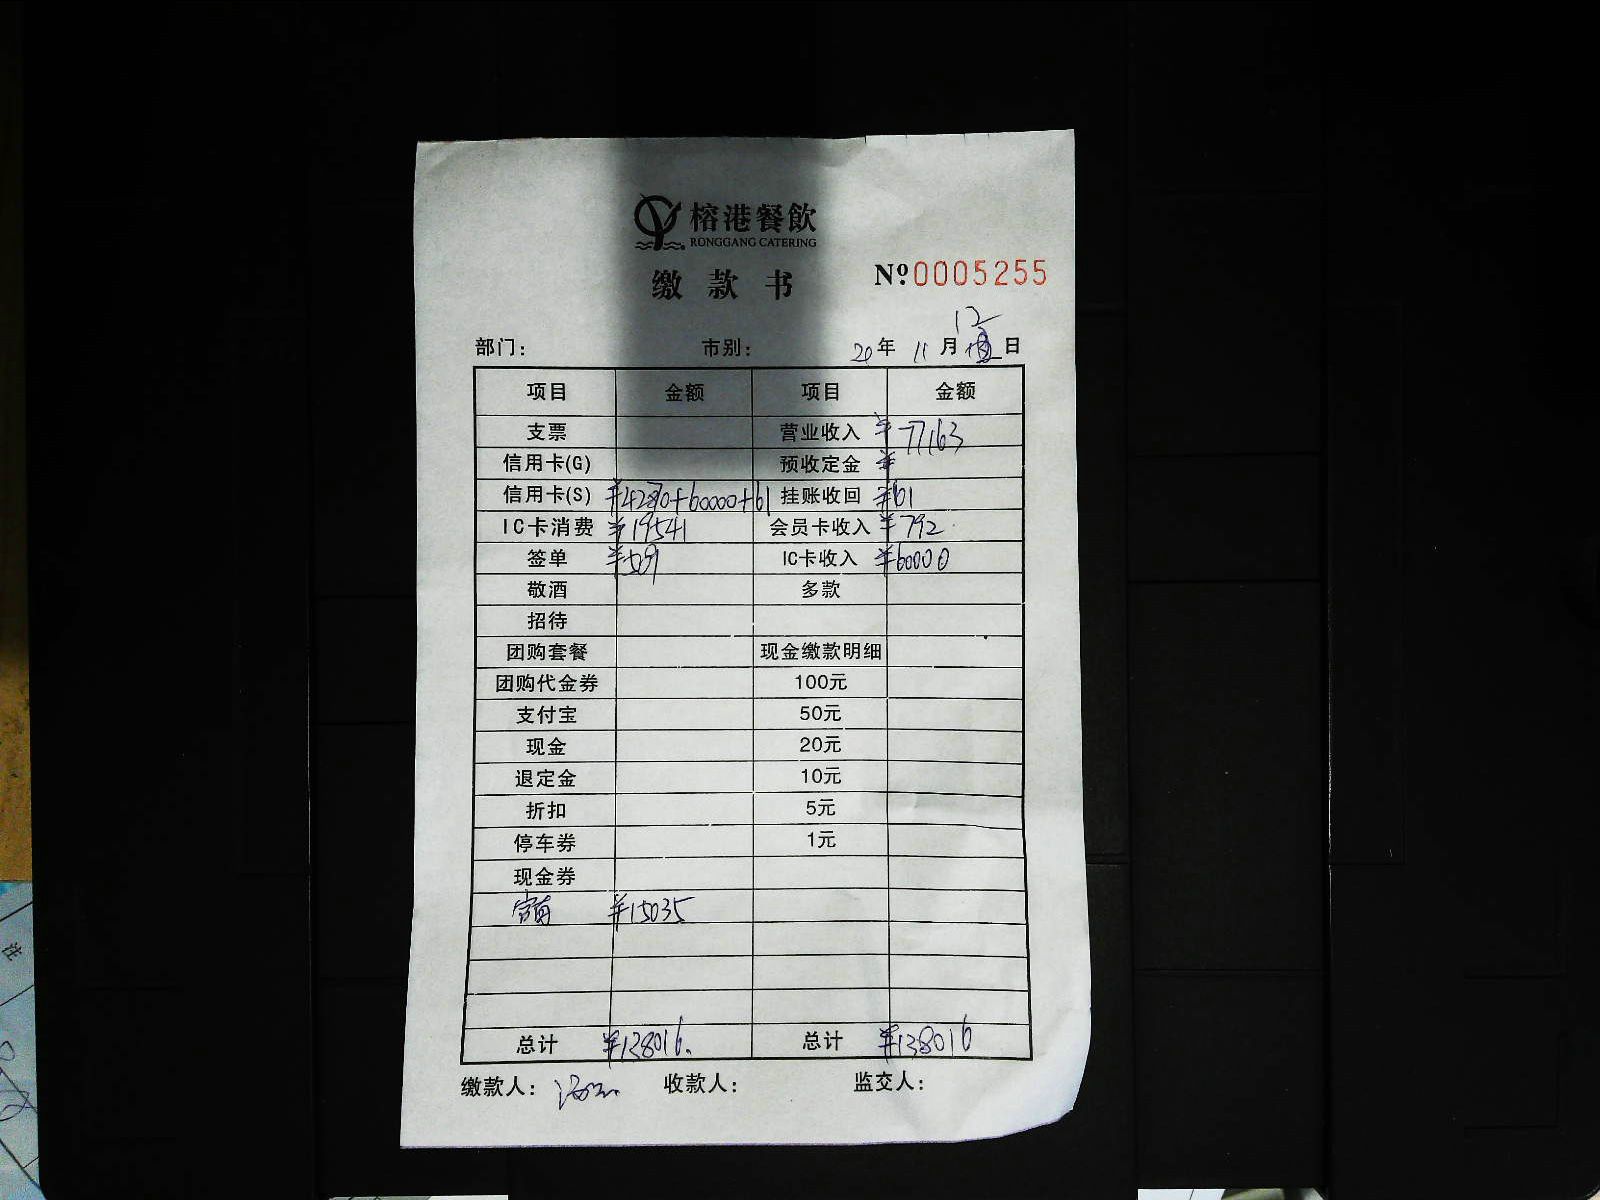 榕港餐飲
RONGGANG CATERING
缴款书
Nº0005255
部门： 市别： 20年 11月 12日
项目 金额 项目 金额
支票 营业收入 ¥77163
信用卡(G) 预收定金 ¥
信用卡(S) ¥42870+60000+61 挂账收回 ¥61
IC卡消费 ¥19541 会员卡收入 ¥792
签单 ¥509 IC卡收入 ¥60000
敬酒 多款
招待
团购套餐 现金缴款明细
团购代金券 100元
支付宝 50元
现金 20元
退定金 10元
折扣 5元
停车券 1元
现金券
¥15035
总计 ¥138016. 总计 ¥138016
缴款人： 收款人： 监交人：
注